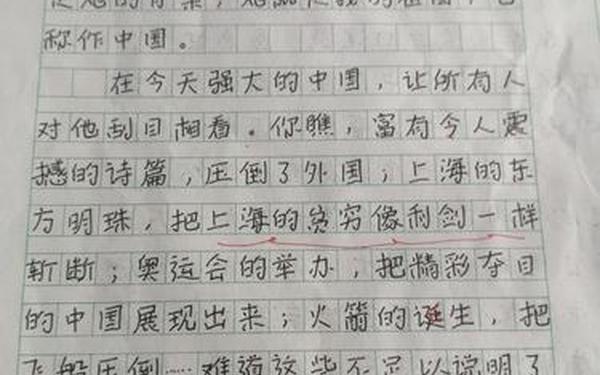 称作中国。
在今天强大的中国，让所有人
对他刮目相看。你瞧，富有令人震
撼的诗篇，压倒了外国；上海的东
方明珠，把上海的贫穷像利剑一样
斩断；奥运会的举办，把精彩夺目
的中国展现出来；火箭的诞生，把
飞船压倒……难道这些不足以说明了